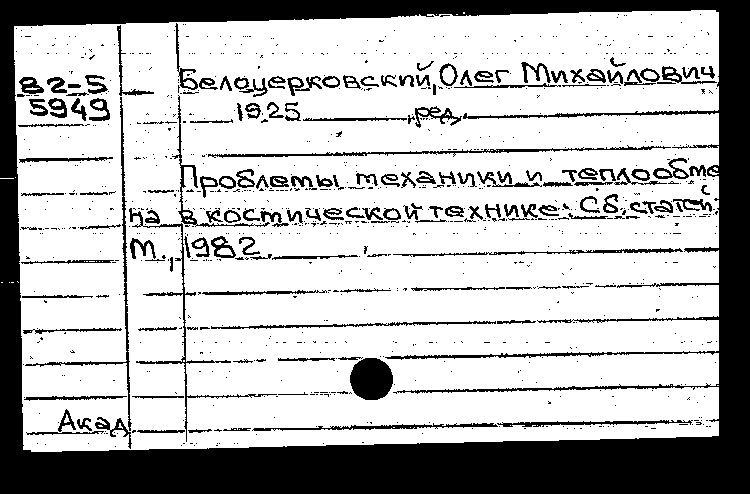 82-5 Белоцерковский, Олег Михайлович
5949 1925 , ред.
Проблемы механики и теплообме
на в космической технике: Сб. статей.
М., 1982.
Акад